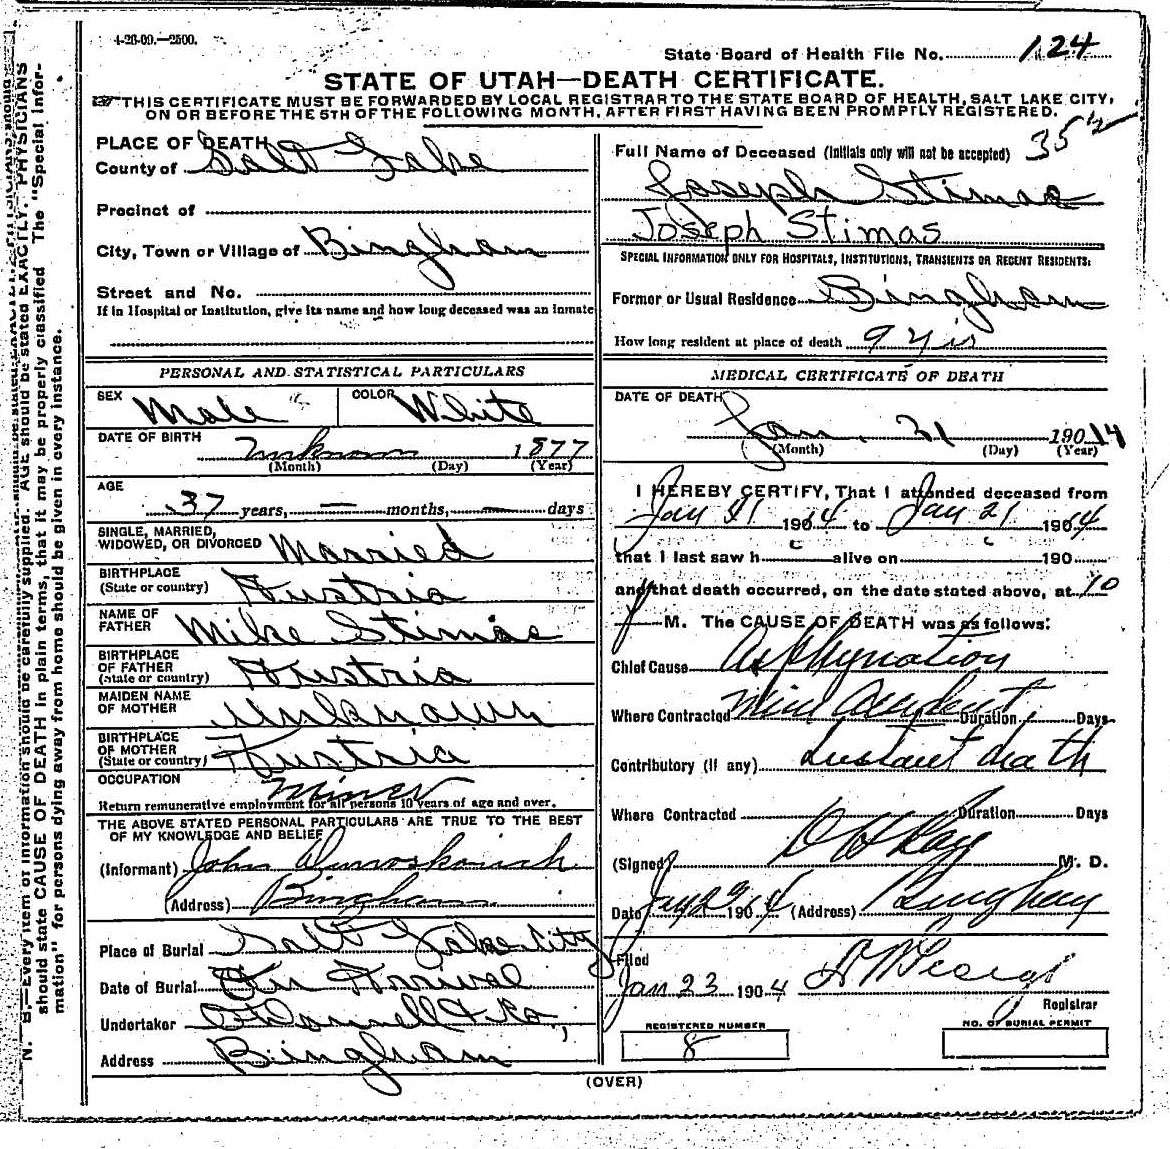 4-26-09.—2500.
State Board of Health File No. 124
STATE OF UTAH—DEATH CERTIFICATE.
THIS CERTIFICATE MUST BE FORWARDED BY LOCAL REGISTRAR TO THE STATE BOARD OF HEALTH, SALT LAKE CITY,
ON OR BEFORE THE 5TH OF THE FOLLOWING MONTH, AFTER FIRST HAVING BEEN PROMPTLY REGISTERED.
PLACE OF DEATH
County of Salt Lake
Precinct of
City, Town or Village of Bingham
Street and No.
If in Hospital or Institution, give its name and how long deceased was an inmate
Full Name of Deceased (Initials only will not be accepted)
Joseph Stimac
Joseph Stimas
SPECIAL INFORMATION ONLY FOR HOSPITALS, INSTITUTIONS, TRANSIENTS OR RECENT RESIDENTS:
Former or Usual Residence Bingham
How long resident at place of death 9 yrs
PERSONAL AND STATISTICAL PARTICULARS
SEX Male COLOR White
DATE OF BIRTH Unknown 1877
(Month) (Day) (Year)
AGE
37 years, — months, — days
SINGLE, MARRIED,
WIDOWED, OR DIVORCED Married
BIRTHPLACE
(State or country) Austria
NAME OF
FATHER Mike Stimac
BIRTHPLACE
OF FATHER
(State or country) Austria
MAIDEN NAME
OF MOTHER Unknown
BIRTHPLACE
OF MOTHER
(State or country) Austria
OCCUPATION Miner
Return remunerative employment for all persons 10 years of age and over.
THE ABOVE STATED PERSONAL PARTICULARS ARE TRUE TO THE BEST
OF MY KNOWLEDGE AND BELIEF
(Informant) John
(Address) Bingham
Place of Burial Salt Lake City
Date of Burial On Arrival
Undertaker O'Donnell & Co,
Address Bingham
MEDICAL CERTIFICATE OF DEATH
DATE OF DEATH
Jan. 21 1914
(Month) (Day) (Year)
I HEREBY CERTIFY, That I attended deceased from
Jan 21 1904 to Jan 21 1904
that I last saw h alive on 190
and that death occurred, on the date stated above, at 10
M. The CAUSE OF DEATH was as follows:
Chief Cause Asphyxation
Where Contracted Mine Accident Duration Days
Contributory (if any) Instant death
Where Contracted Duration Days
(Signed) M. D.
Date Jan 23 1904 (Address) Bingham
Filed
Jan 23 1904
Registrar
REGISTERED NUMBER
8
NO. OF BURIAL PERMIT
(OVER)
N. B.—Every item of information should be carefully supplied. AGE should be stated EXACTLY. PHYSICIANS
should state CAUSE OF DEATH in plain terms, that it may be properly classified. The "Special Infor-
mation" for persons dying away from home should be given in every instance.